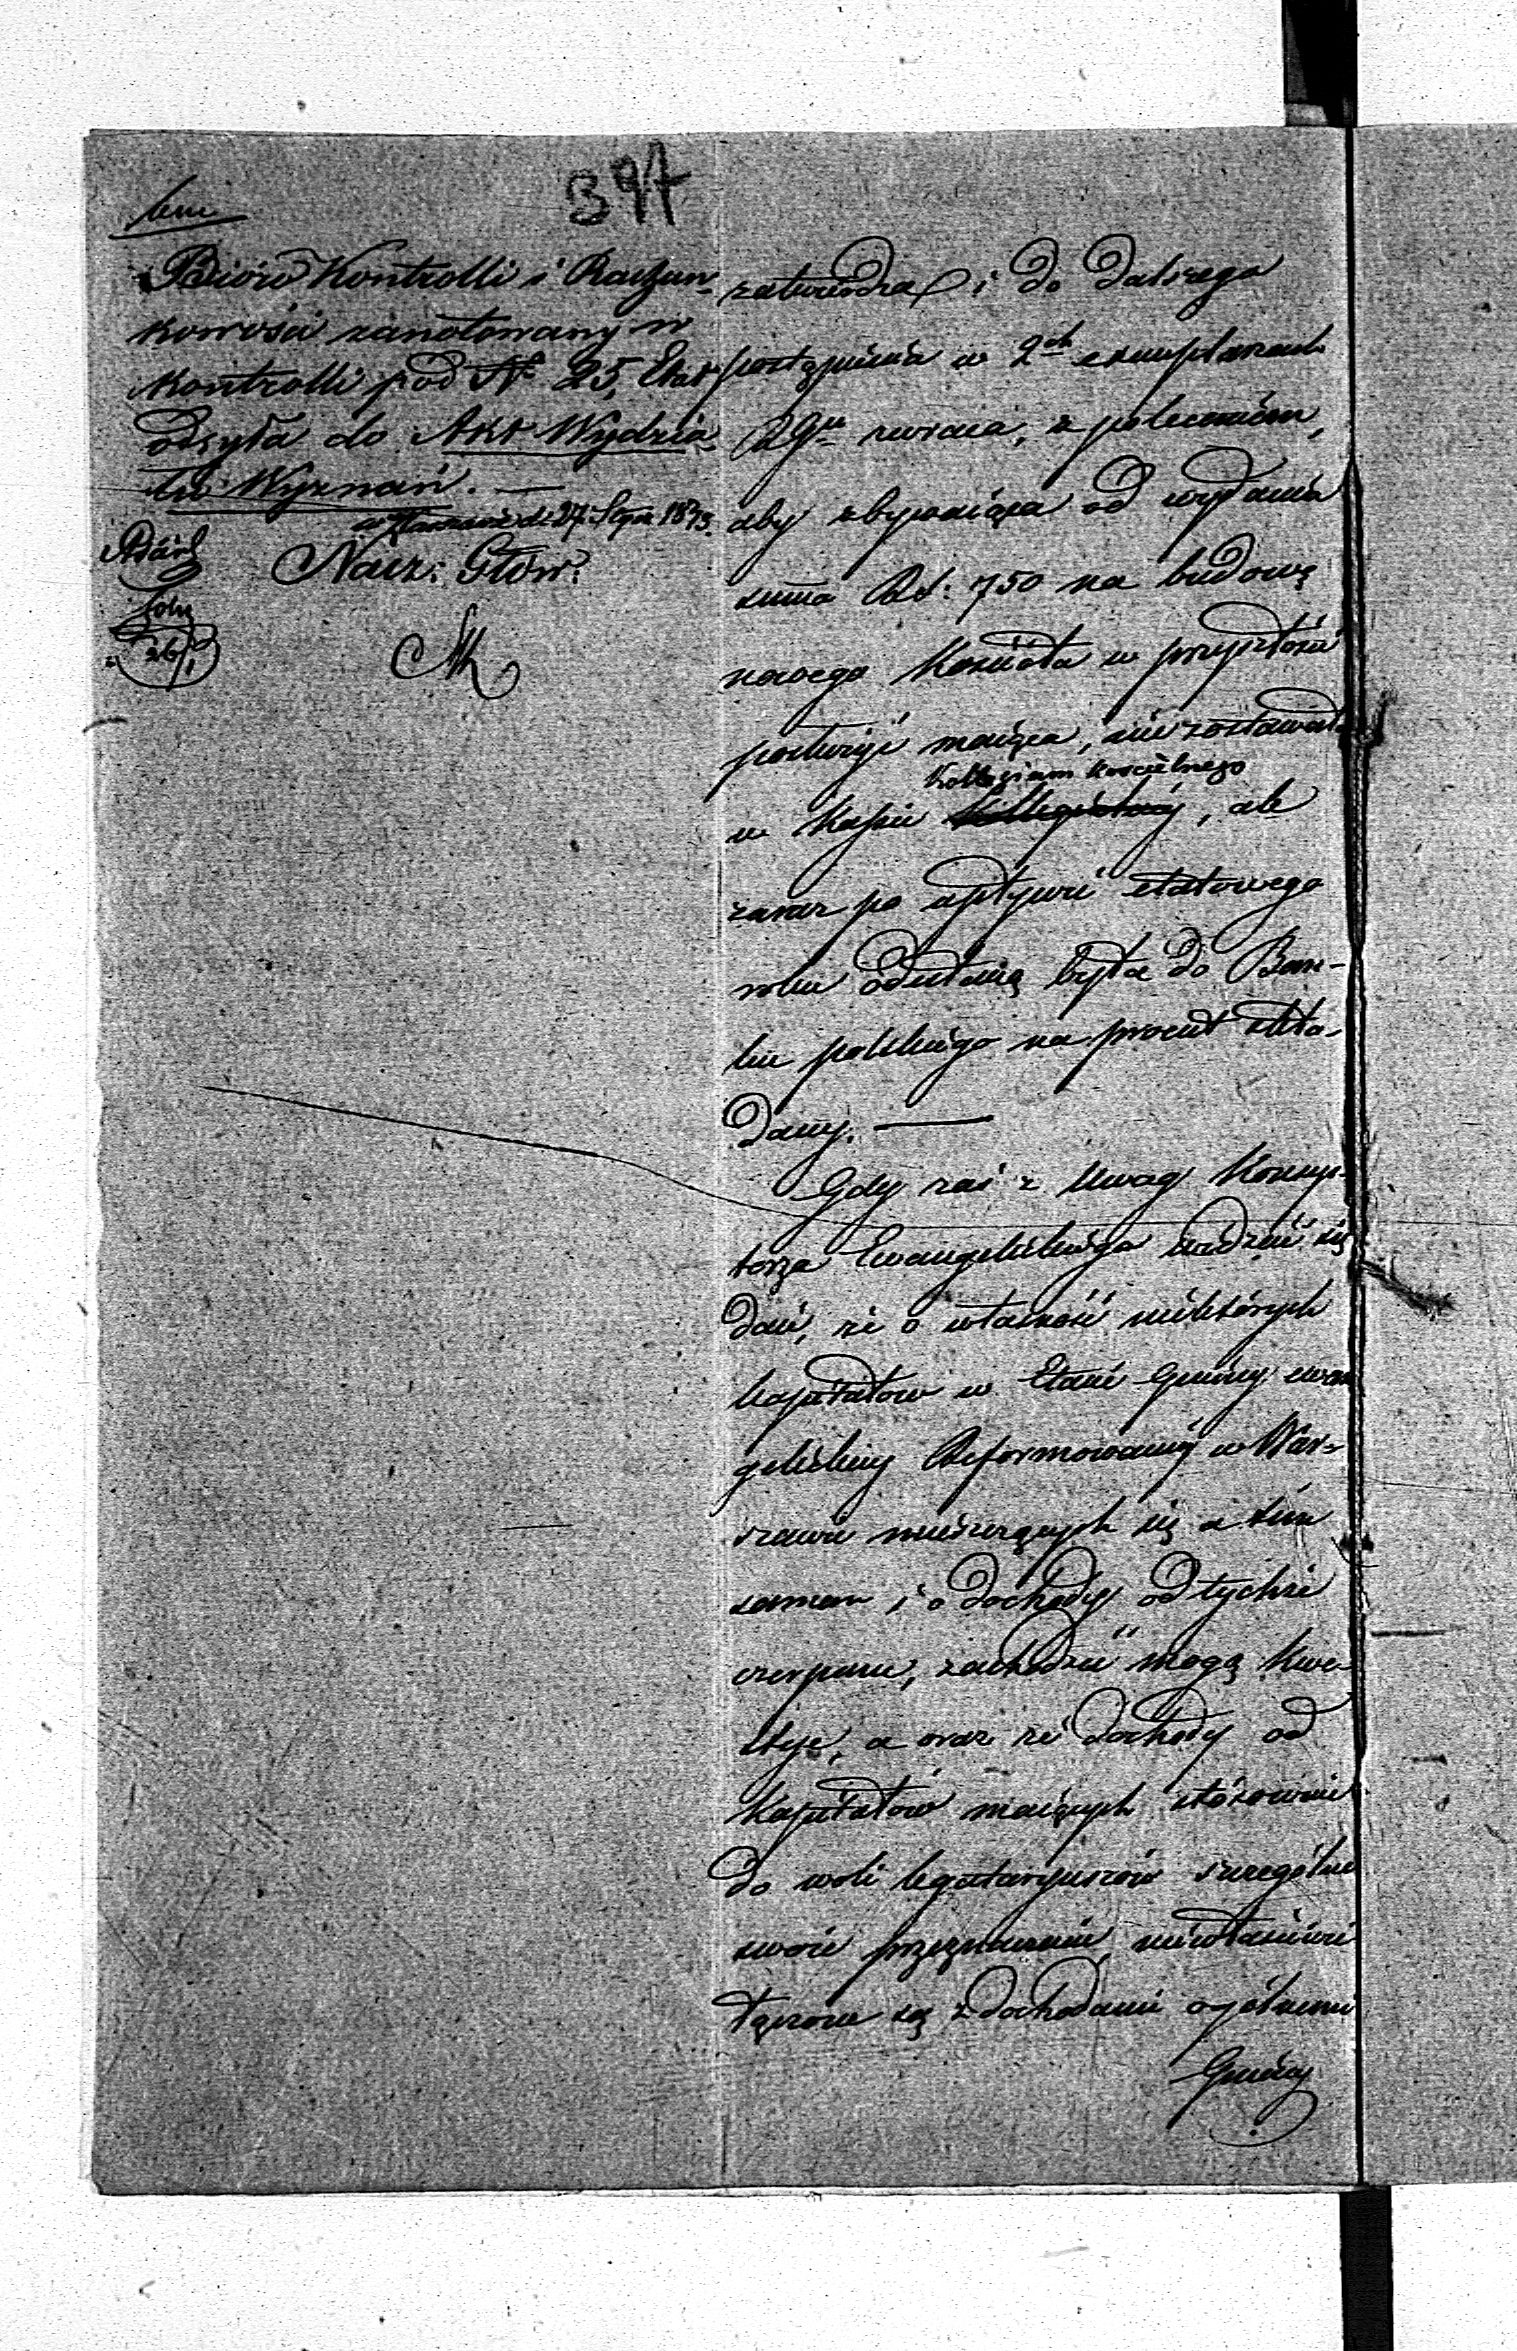 397
Bióro Kontrolli i Rachun-
kowości zanotowany w
Kontrolli pod No 25, Etat
odsyła do Akt Wydzia-
łu Wyznań. —
w Warszawie d. 27 Stycz 184
Nacz: Głów:
zatwierdza i do dalszego
postąpienia w 2ch exemplarzach
zwraca, z poleceniem,
aby zbywająca od wydania
summa Rs: 750 na budowę
nowego Kościoła w przyszłości
posłużyć maiąca, niezostawała
Kollegium kościelnego
w Kassie , ale
zaraz po upływie etatowego
roku odesłaną była do Ban-
ku polskiego na procent skła-
dany. —
Gdy zaś z Uwag Konsys-
torza Ewangelickiego widzieć się
daie, że o własność niektórych
kapitałów w Etacie Gminy ewan
gelickiey Reformowaney w War-
szawie mieszczących się a tém
samem i o dochody od tychże
czerpane, zachodzić mogą kwe-
stye, a oraz że dochody od
Kapitałów maiących stósownie
do woli legataryuszów szczególne
swoie przeznaczenie, niewłaściwie
łączone są z dochodami ogólnemi
Gminy